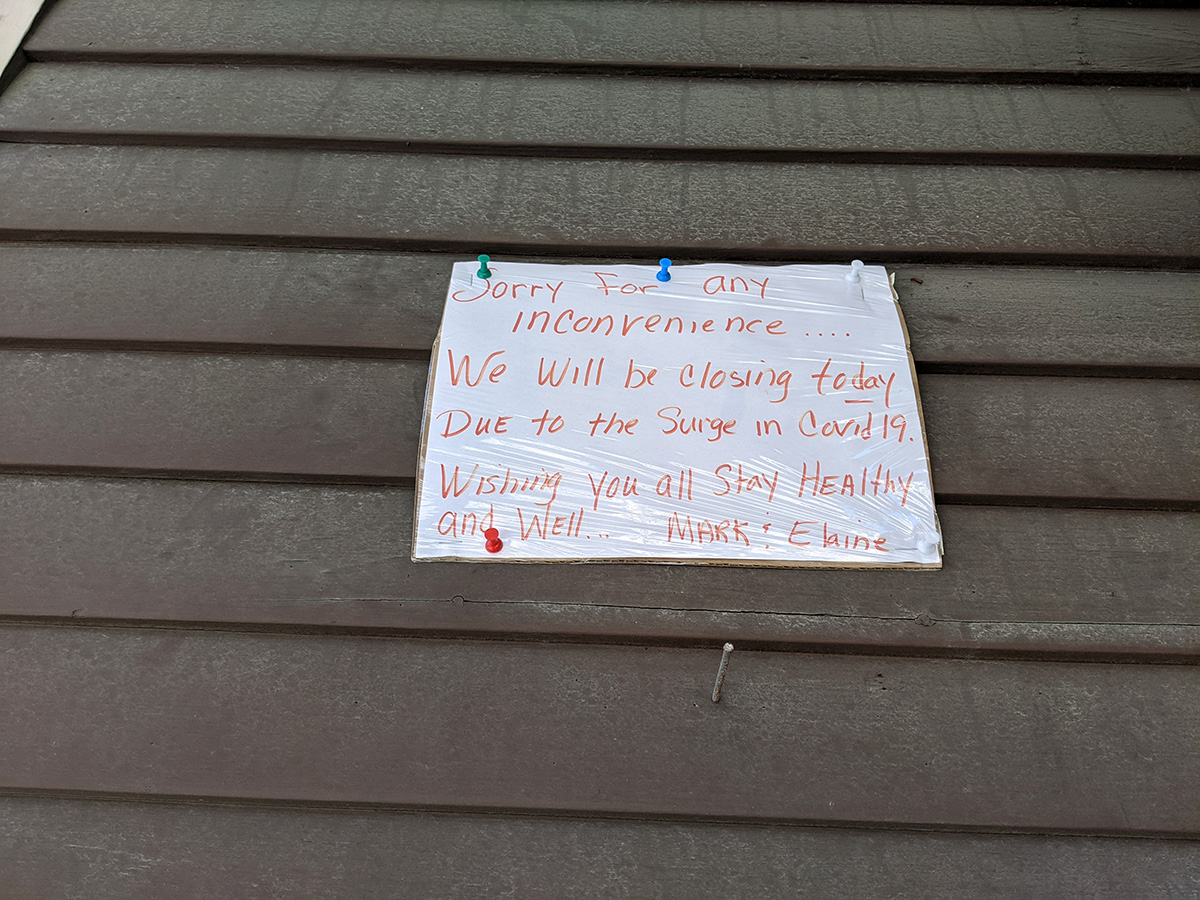 Sorry For any
inconvenience ....
We Will be closing today
DUE to the Surge in Covid 19.
Wishing you all Stay HEAlthy
and WEll... MARK & Elaine